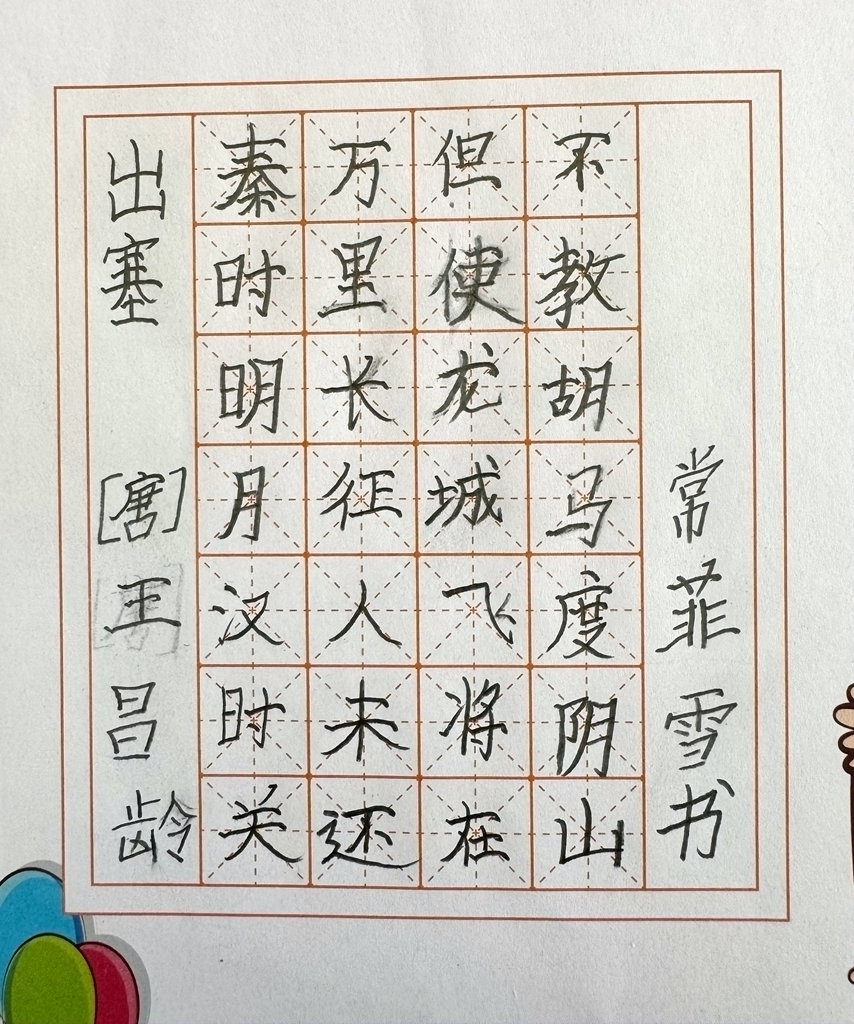 出塞
[唐]王昌龄
秦时明月汉时关
万里长征人未还
但使龙城飞将在
不教胡马度阴山
常菲雪书